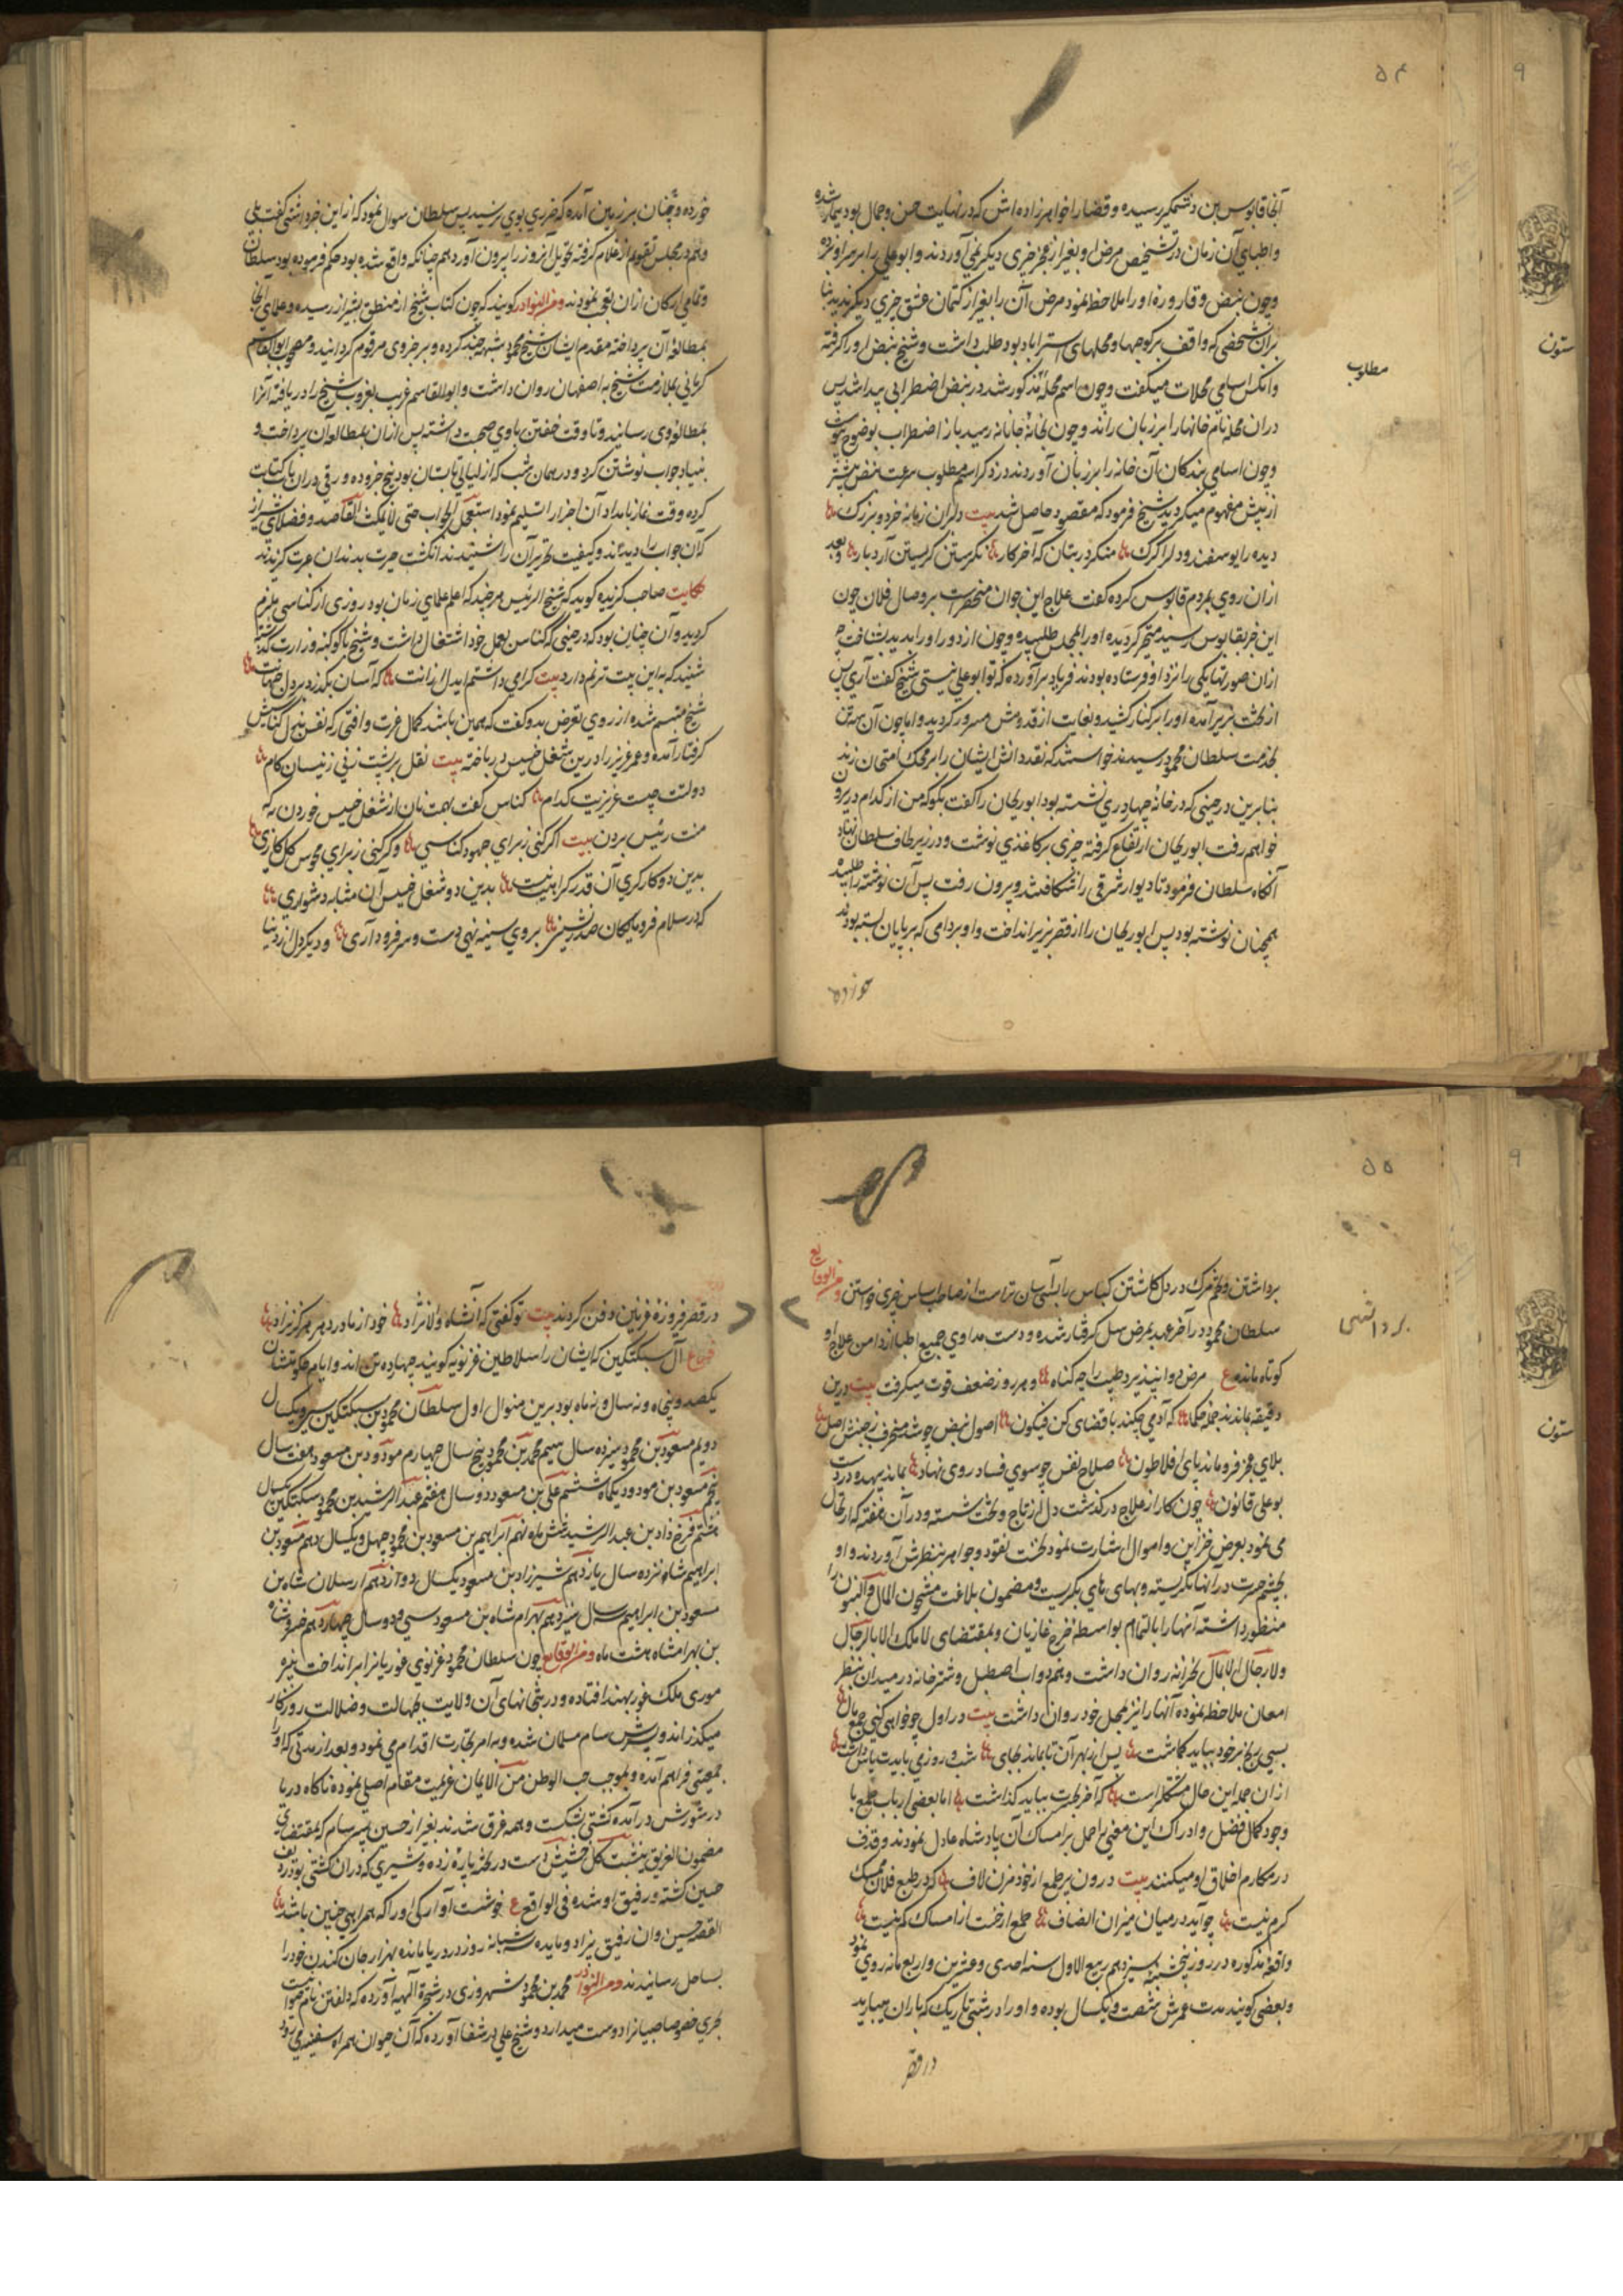 ۵۴
۹
آنجا قابوس بن وشمگیر رسیده و قضا را خواهرزاده‌اش که در نهایت حسن و جمال بود بیمار شده
و اطبای آن زمان در تشخیص مرض او بغیر از عجز چیزی دیگر نمی‌آوردند و ابوعلی را بر سر او بردند
و چون نبض و قاروره او را ملاحظه نمود مرض آن را بغیر از کتمان عشق چیزی دیگر ندید بنا
بران شخصی که واقف بر کوچها و محلهای استراباد بود طلب داشت و شیخ نبض او را گرفته
و آنکس اسامی محلات میگفت و چون اسم محله مذکور شد در نبض اضطرابی پیدا شد پس
دران محله نام خانها را بر زبان راند و چون بخانه جانانه رسید باز اضطراب بوضوح پیوست
و چون اسامی بندگان آن خانه را بر زبان آوردند در ذکر اسم مطلوب سرعت نبض بیشتر
از پیش مفهوم میگردید شیخ فرمود که مقصود حاصل شد بیت دلبران زمانه خرد و بزرگ
دیده را یوسفند و دل را گرگ منگر در بتان که آخر کار نگرستن گریستن آرد بار و بعد
ازان روی بمردم قابوس کرده گفت علاج این جوان منحصر است بر وصال فلان چون
این خبر بقابوس رسید متحیر گردیده او را بمجلس طلبیده و چون از دور او را بدید بشناخت چه
ازان صورتها یکی را نزد او فرستاده بودند فریاد برآورده که تو ابوعلی نیستی شیخ گفت آری پس
از تخت بزیر آمده او را بر کنار کشید و بغایت از قدومش مسرور گردید و اما چون آن سه تن
بخدمت سلطان محمود رسیدند خواست که نقد دانش ایشان را بر محک امتحان زند
بنابرین در حینی که در خانه چهار دری نشسته بود ابوریحان را گفت بگو که من از کدام در بیرون
خواهم رفت ابوریحان ارتفاع گرفته چیزی بر کاغذی نوشت و در زیر طاق سلطان نهاد
آنگاه سلطان فرمود تا دیوار شرقی را شکافتند و بیرون رفت پس آن نوشته را طلبید
همچنان نوشته بود پس ابوریحان را از قصر بزیر انداخت و او بر دامی که بر پایان بسته بودند
خورده
مطلوب
ستون
خورده و چنان بر زمین آمد که ضرری بوی نرسید پس سلطان سوال نمود که از این خبر داشتی گفت بلی
و هم در مجلس تقویم از غلام گرفته تحویل آنروز را بیرون آورد هم چنانکه واقع شده بود حکم فرموده بود سلطان
و تمامی ارکان ازان تعجب نمودند ومن النوادر گویند که چون کتاب شیخ از منطق بشیراز رسیده و علمای آنجا
بمطالعه آن پرداخته مقدم ایشان شیخ محمود شبهه چند کرده و بر جزوی مرقوم گردانید و مصحوب ابوالقاسم
کرمانی بملازمت شیخ به اصفهان روان داشت و ابوالقاسم قریب بغروب شیخ را دریافته آنرا
بمطالعه وی رسانید و تا وقت خفتن باوی صحبت داشته پس ازان بمطالعه آن پرداخت و
بنیاد جواب نوشتن کرد و در همان شب که از لیالی تابستان بود پنج جزو ده ورقی دران باب کتابت
کرده وقت نماز بامداد آن اجزا را تسلیم نمود استعجل الجواب حتی لایمکث القاصد و فضلای شیراز
که آن جواب را دیدند و کیفیت تحریر آن را شنیدند انگشت حیرت بدندان عبرت گزیدند
حکایت صاحب گزیده گوید که شیخ الرئیس هرچند که اعلم علمای زمان بود روزی از کناسی ملزم
گردید و آن چنان بود که در حینی که کناس بعمل خود اشتغال داشت و شیخ با کوکبه وزارت گذشته
شنید که به این بیت ترنم دارد بیت گرامی داشتم ای دل ازانت که آسان بگذرد بر دل جهانت
شیخ متبسم شده از روی تعرض بدو گفت که همین باشد کمال عزت و افتی که نفس نیل کناسیش
گرفتار آمده و عمر عزیز را درین شغل خسیس در باخته بیت نقل بر پشت نی ز نیسان کام
دولتت چیست عزیزیت کدام کناس گفت بهمت نان از شغل خسیس خوردن به که
منت رئیس بردن بیت اگر کنی ز برای جهود کناسی و گر کنی ز برای مجوس گل کاری
بدین دو کار کری آن قدر کراهیت نیست بدین دو شغل خسیس آن مثابه دشواری
که در سلام فرومایگان صدرنشین بروی سینه نهی دست و سر فرود آری و دیگر دل از دنیا
۵۵
۹
برداشتن و تخم ترک در دل کاشتن کناس را به آسان تراست از صاحب اساس چیزی خواستن ومن الوقایع
سلطان محمود در آخر عهد بمرض سل گرفتار شده و دست مداوی جمیع اطبا از دامن علاج او
کوتاه مانده ع مرض دوا نپذیرد طبیب را چه گناه و هر روز ضعف قوت میگرفت بیت درین
دقیقه بماندند جمله حکما که آدمی چکند با قضای کن فیکون اصول نبض چو شد منحرف ز جنبش اصل
بلای عجز فرو ماند پای افلاطون صلاح نفس چو سوی فساد روی نهاد بماند بیهده در دست
بوعلی قانون چون کار از علاج درگذشت دل از تاج و تخت شسته و در آن هفته که ارتحال
می نمود بعرض خزاین و اموال اشارت نمود تخت نقود و جواهر بنظرش آوردند و او
بچشم حسرت درآنها نگریسته و بهای های بگریست و مضمون بلاغت مشحون المال والبنون را
منظور داشته آنها را بالتمام بواسطه خرج غازیان و بمقتضای لا ملک الا بالرجال
ولا رجال الا بالمال بخزانه روان داشت و هم دواب اصطبل و شترخانه در میدان بنظر
امعان ملاحظه نموده آنها را نیز بمحل خود روان داشت بیت در اول چو خواهی کنی جمع مال
بسی رنج بر خود بباید گماشت پس از بهر آن تا بماند بجای شب و روزی بایدت پاس داشت
ازان جمله این حال مشکلتر است که آخر بحسرت بباید گذاشت اما بعضی ارباب طمع با
وجود کمال فضل و ادراک این معنی را حمل بر امساک آن پادشاه عادل نمودند و قذف
در مکارم اخلاق او میکنند بیت درون پر طمع از خود مزن لاف که در طبع فلان ممسک
کرم نیست چو آید در میان میزان انصاف طمع از خست از امساک کم نیست
واقعه مذکوره در روز پنجشنبه سیزدهم ربیع الاول سنه احدی و عشرین و اربعمائه روی نمود
و بعضی گویند مدت عمرش شصت و یکسال بوده و او را در شبی تاریک که باران میبارید
در قصر
برداشتن
ستون
در قصر فیروزه غزنین دفن کردند بیت تو گفتی که آن شاه والا نژاد خود از مادر دهر هرگز نزاد
فرع آل سبکتکین که ایشان را سلاطین غزنویه گویند چهارده تن اند و ایام حکومتشان
یکصد و پنجاه و نه سال و نه ماه بود برین منوال اول سلطان محمود بن سبکتکین سی و یکسال
دویم مسعود بن محمود سیزده سال سیم محمد بن محمود پنج سال چهارم مودود بن مسعود هفت سال
پنجم مسعود بن مودود یکماه ششم علی بن مسعود دو سال هفتم عبدالرشید بن محمود سبکتکین یکسال
هشتم فرخ زاد بن عبدالرشید شش ماه نهم ابراهیم بن مسعود بن محمود چهل و یکسال دهم مسعود بن
ابراهیم شانزده سال یازدهم شیرزاد بن مسعود یکسال دوازدهم ارسلان شاه بن
مسعود بن ابراهیم سه سال سیزدهم بهرام شاه بن مسعود سی و دو سال چهاردهم خسرو شاه
بن بهرامشاه هشت ماه ومن الوقایع چون سلطان محمود غزنوی غوریانرا برانداخت نبیره
سوری ملک غور بهند افتاده و در بتخانهای آن ولایت بجهالت و ضلالت روزگار
میگذراند و پسرش سام مسلمان شده و به امر تجارت اقدام می نمود و بعد از مدتی که او را
جمعیتی فراهم آمده و بموجب حب الوطن من الایمان عزیمت مقام اصلی نموده ناگاه دریا
در شورش درآمده کشتی بشکست و همه غرق شدند بغیر از حسین پسر سام که بمقتضای
مضمون الغریق یتشبث بکل حشیش دست در تخته پاره زده و شیری که دران کشتی بود ردیف
حسین گشته و رفیق او شده فی الواقع ع خوشست آوارگی او را که همراهی چنین باشد
القصه حسین وان رفیق بی زاد و مایده سه شبانه روز در دریا مانده بهزار جان کندن خود را
بساحل رسانیدند ومن النوادر محمد بن محمود شهرزوری در شجره الهیه آورده که دلفین نام حیوانیست
بحری خصوصا صبیانرا دوست میدارد و شیخ علی در شفا آورده که آن حیوان همراه سفینه می‌رود